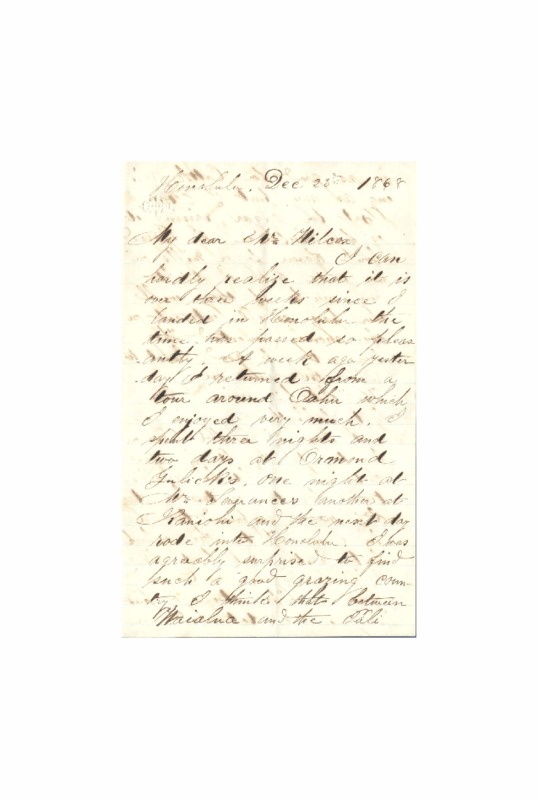 Honolulu, Dec 23rd 1868
My dear Mr Wilcox
I can
hardly realize that it is
over two weeks since I
landed in Honolulu the
time has passed so pleas
antly. A week ago yester
day I returned from a
tour around Oahu which
I enjoyed very much. I
spent three nights and
two days at Ormond
Gulicks, one night at
Mr another at
and the next day
rode into Honolulu. I was
agreeably surprised to find
such a good grazing coun
try I think that between
Waialua and the Pali